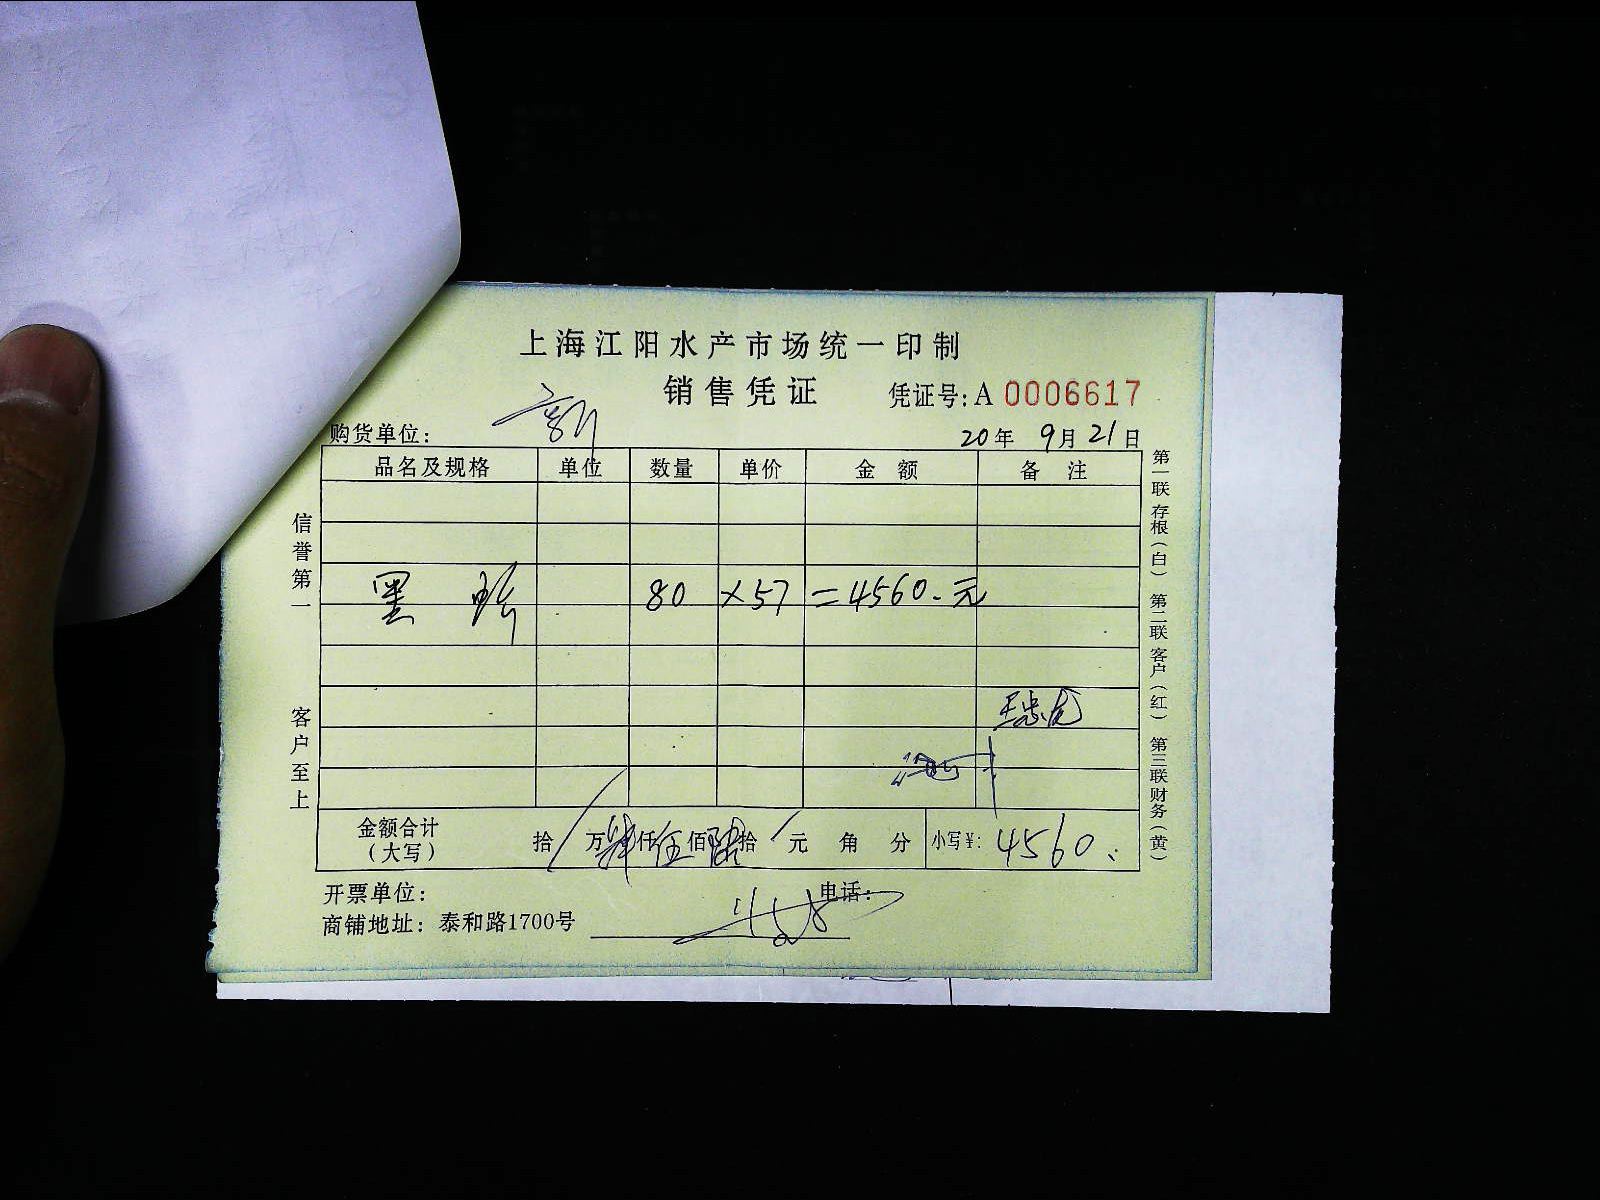 上海江阳水产市场统一印制
销售凭证
凭证号:A 0006617
购货单位:
20年 9月21日
品名及规格 单位 数量 单价 金额 备注
黑 80 ×57 =4560.元
金额合计(大写) 拾 万肆仟伍佰陆拾 元 角 分 小写¥: 4560.
开票单位: 电话:
商铺地址: 泰和路1700号
信誉第一 客户至上
第一联存根(白) 第二联客户(红) 第三联财务(黄)